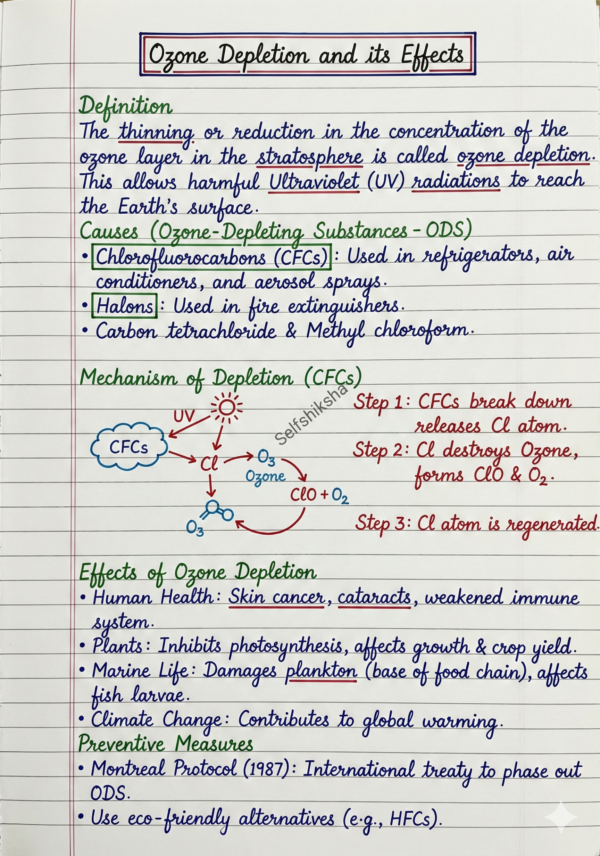 Ozone Depletion and its Effects
Definition
The thinning or reduction in the concentration of the
ozone layer in the stratosphere is called ozone depletion.
This allows harmful Ultraviolet (UV) radiations to reach
the Earth's surface.
Causes (Ozone-Depleting Substances - ODS)
• Chlorofluorocarbons (CFCs): Used in refrigerators, air
conditioners, and aerosol sprays.
• Halons: Used in fire extinguishers.
• Carbon tetrachloride & Methyl chloroform.
Mechanism of Depletion (CFCs)
Selfshiksha
UV
CFCs
Cl
O₃
Ozone
ClO + O₂
O₃
Step 1: CFCs break down
releases Cl atom.
Step 2: Cl destroys Ozone,
forms ClO & O₂.
Step 3: Cl atom is regenerated.
Effects of Ozone Depletion
• Human Health: Skin cancer, cataracts, weakened immune
system.
• Plants: Inhibits photosynthesis, affects growth & crop yield.
• Marine Life: Damages plankton (base of food chain), affects
fish larvae.
• Climate Change: Contributes to global warming.
Preventive Measures
• Montreal Protocol (1987): International treaty to phase out
ODS.
• Use eco-friendly alternatives (e.g., HFCs).